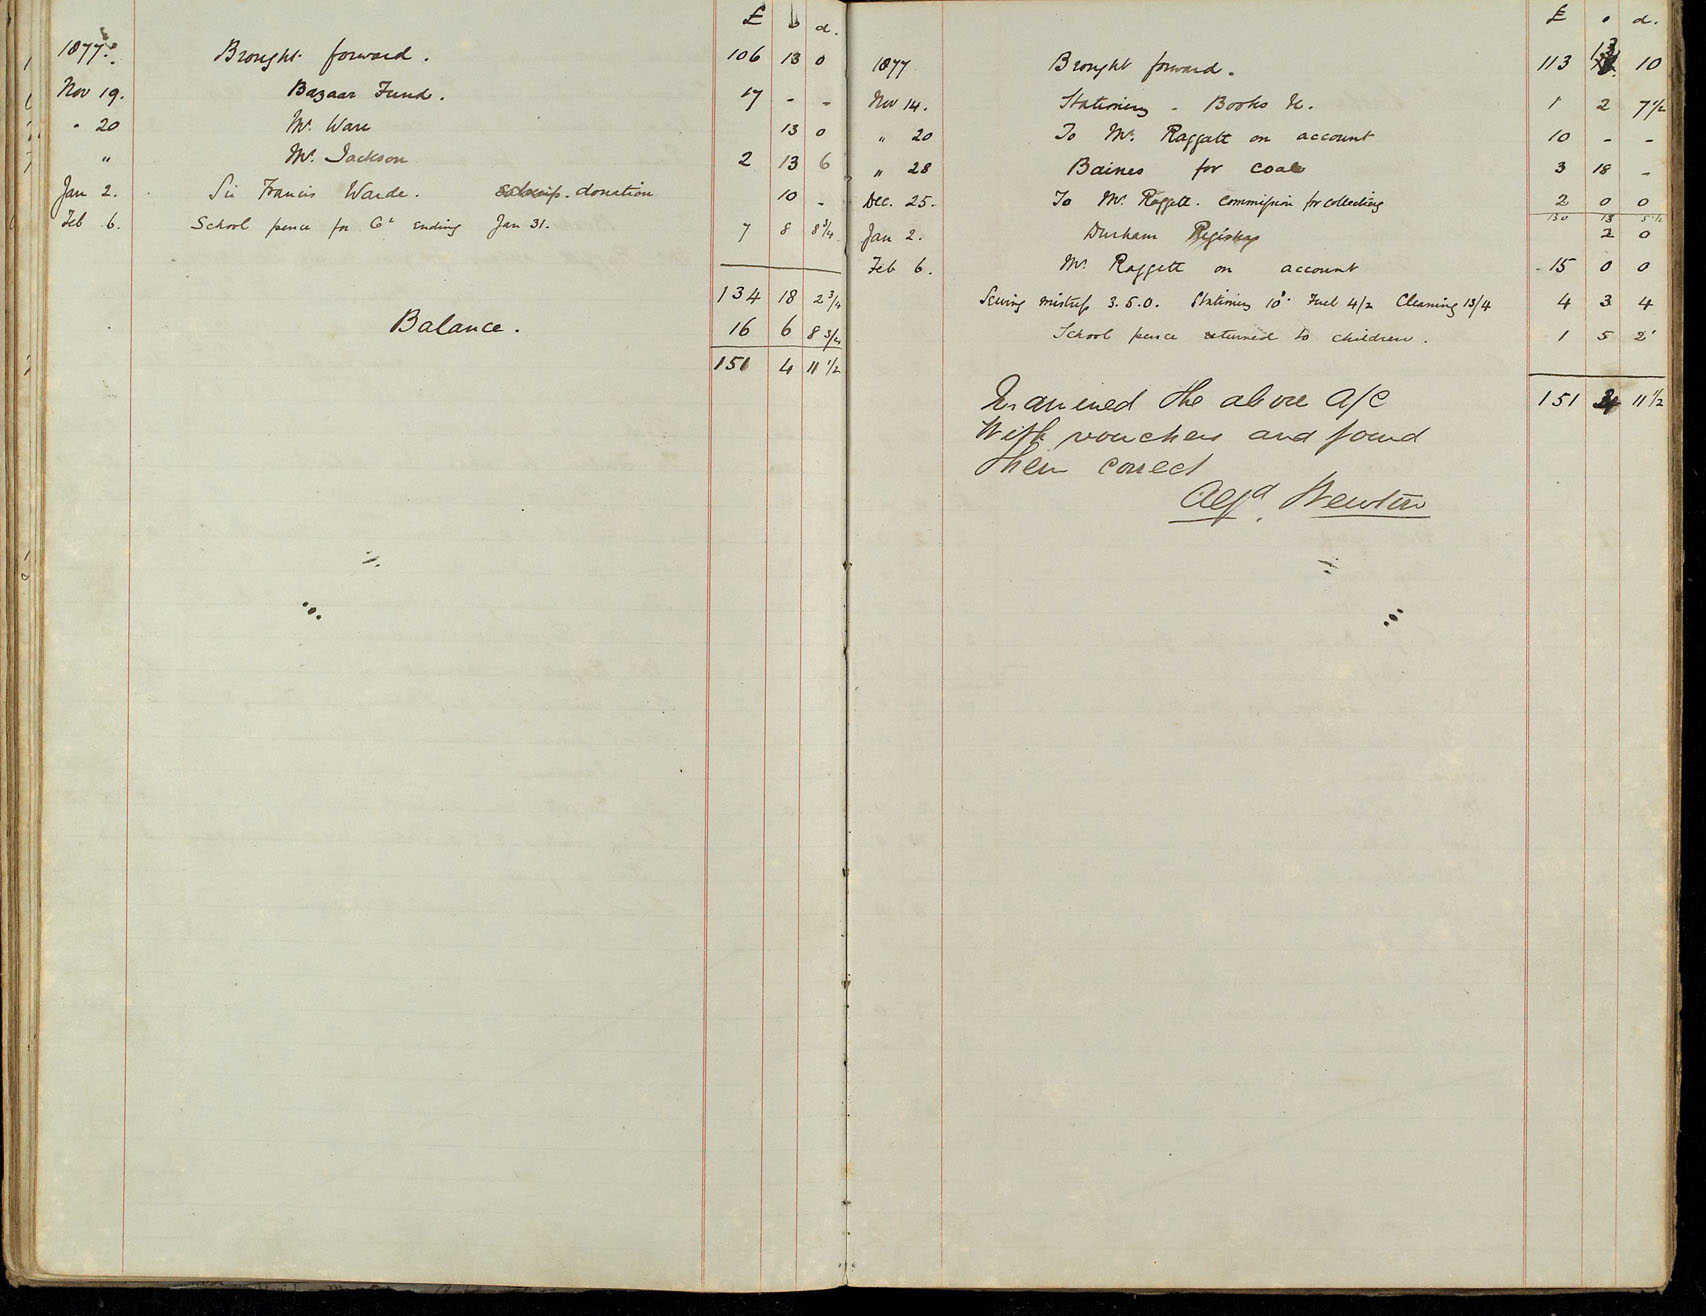 £ s d.
1877. Brought forward. 106 13 0
Nov 19. Bazaar Fund. 17 - -
" 20 Mr. Ware 13 0
" Mr. Jackson 2 13 6
Jan 2. Sir Francis Warde. donation 10 -
Feb 6. School pence for ending Jan 31. 7 8 8 3/4
134 18 2 3/4
Balance. 16 6 8 3/4
151 4 11 1/2
£ s d.
1877 Brought forward. 113 13 10
Nov 14. Stationery - Books &c. 1 2 7 1/2
" 20 To Mr. Raggett on account 10 - -
" 28 Baines for coals 3 18 -
Dec. 25. To Mr. Raggett. commission for collecting 2 0 0
130 13 5 1/2
Jan 2. Durham 2 0
Feb 6. Mr. Raggett on account 15 0 0
Sewing mistress 3.5.0. Stationery 10d. Fuel 4/2 Cleaning 13/4 4 3 4
School pence returned to children. 1 5 2
151 4 11 1/2
Examined the above a/c
With vouchers and found
them correct
Newton